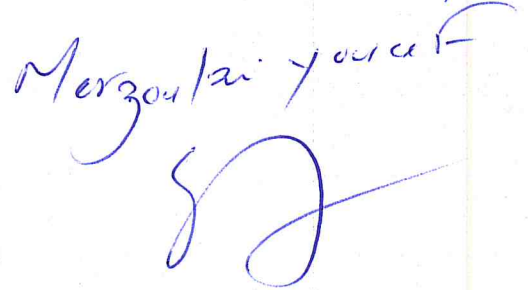 Merzouki youcef